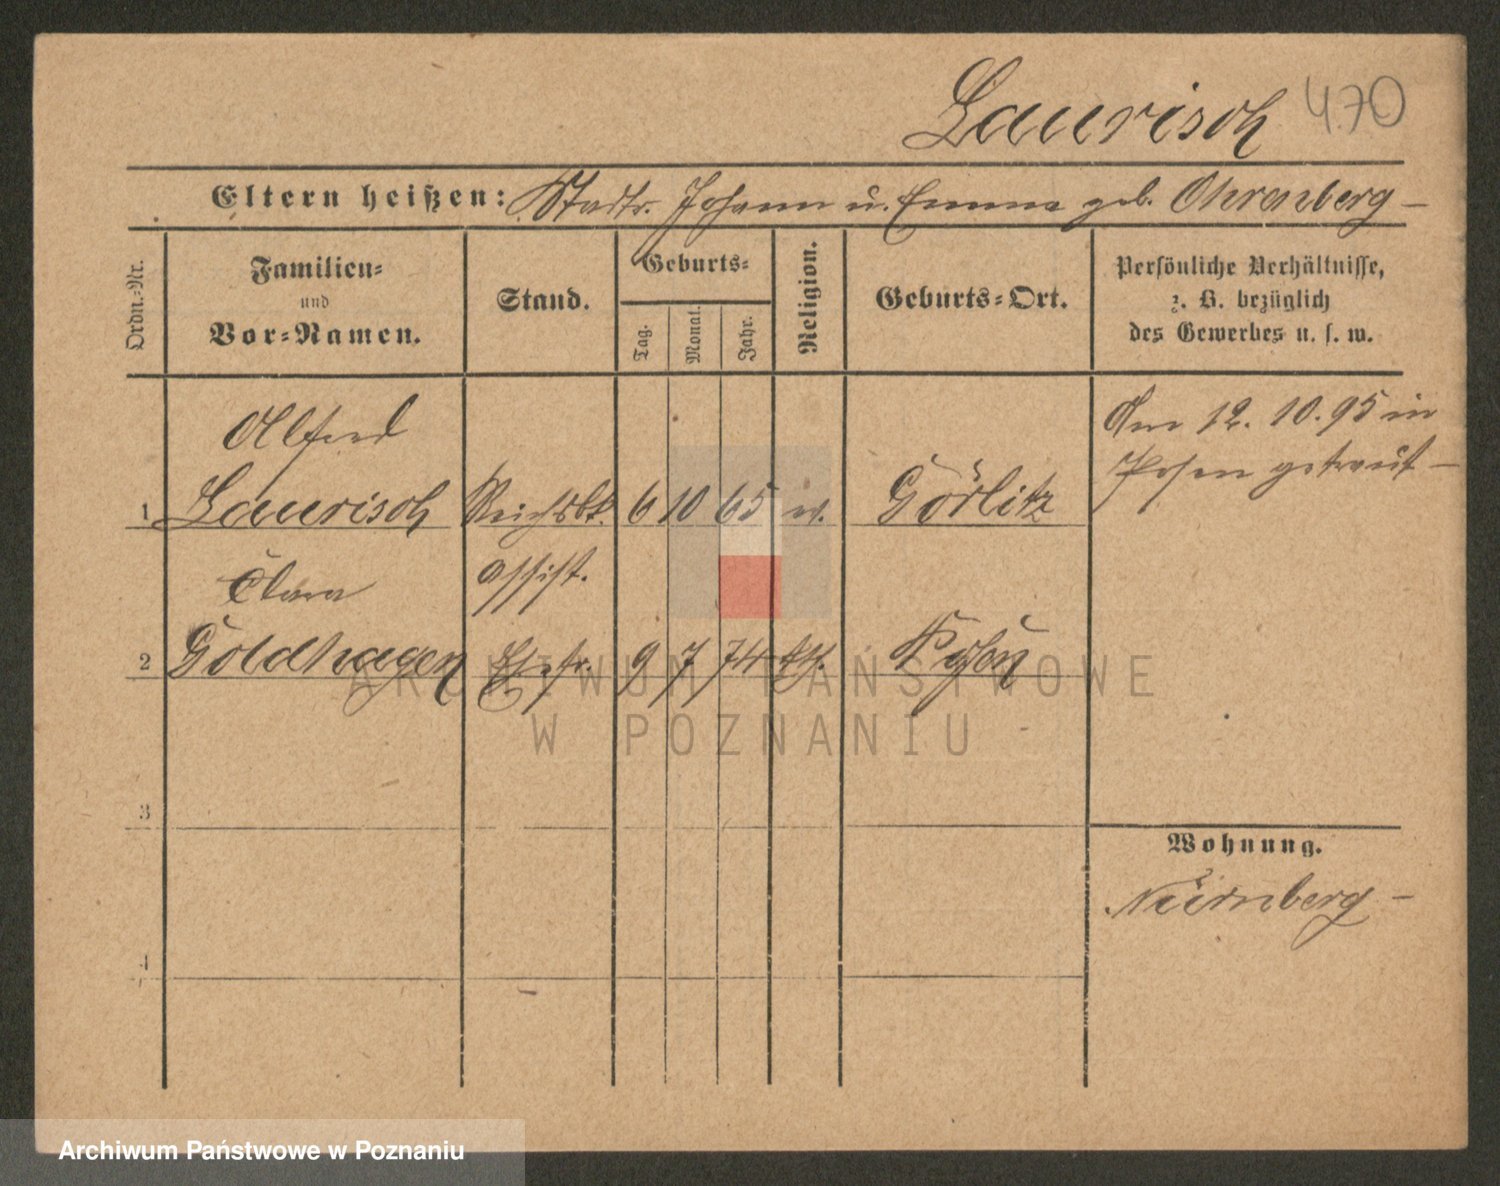 Laurisch 470
Eltern heißen: Stadtr. Johann u. Emma geb. Ohrenberg –
Ordn.-Nr.
Familien-
und
Vor-Namen.
Stand.
Geburts-
Tag.
Monat.
Jahr.
Religion.
Geburts-Ort.
Persönliche Verhältnisse,
z. B. bezüglich
des Gewerbes u. s. w.
Alfred
1 Laurisch Reichsbk. 6 10 65 ev. Görlitz
assist.
Am 12. 10. 95 in
Posen getraut –
Clara
2 Goldhagen Ehefr. 9 7 74 kth. Posen
3
4
Wohnung.
Nürnberg –
ARCHIWUM PAŃSTWOWE
W POZNANIU
Archiwum Państwowe w Poznaniu